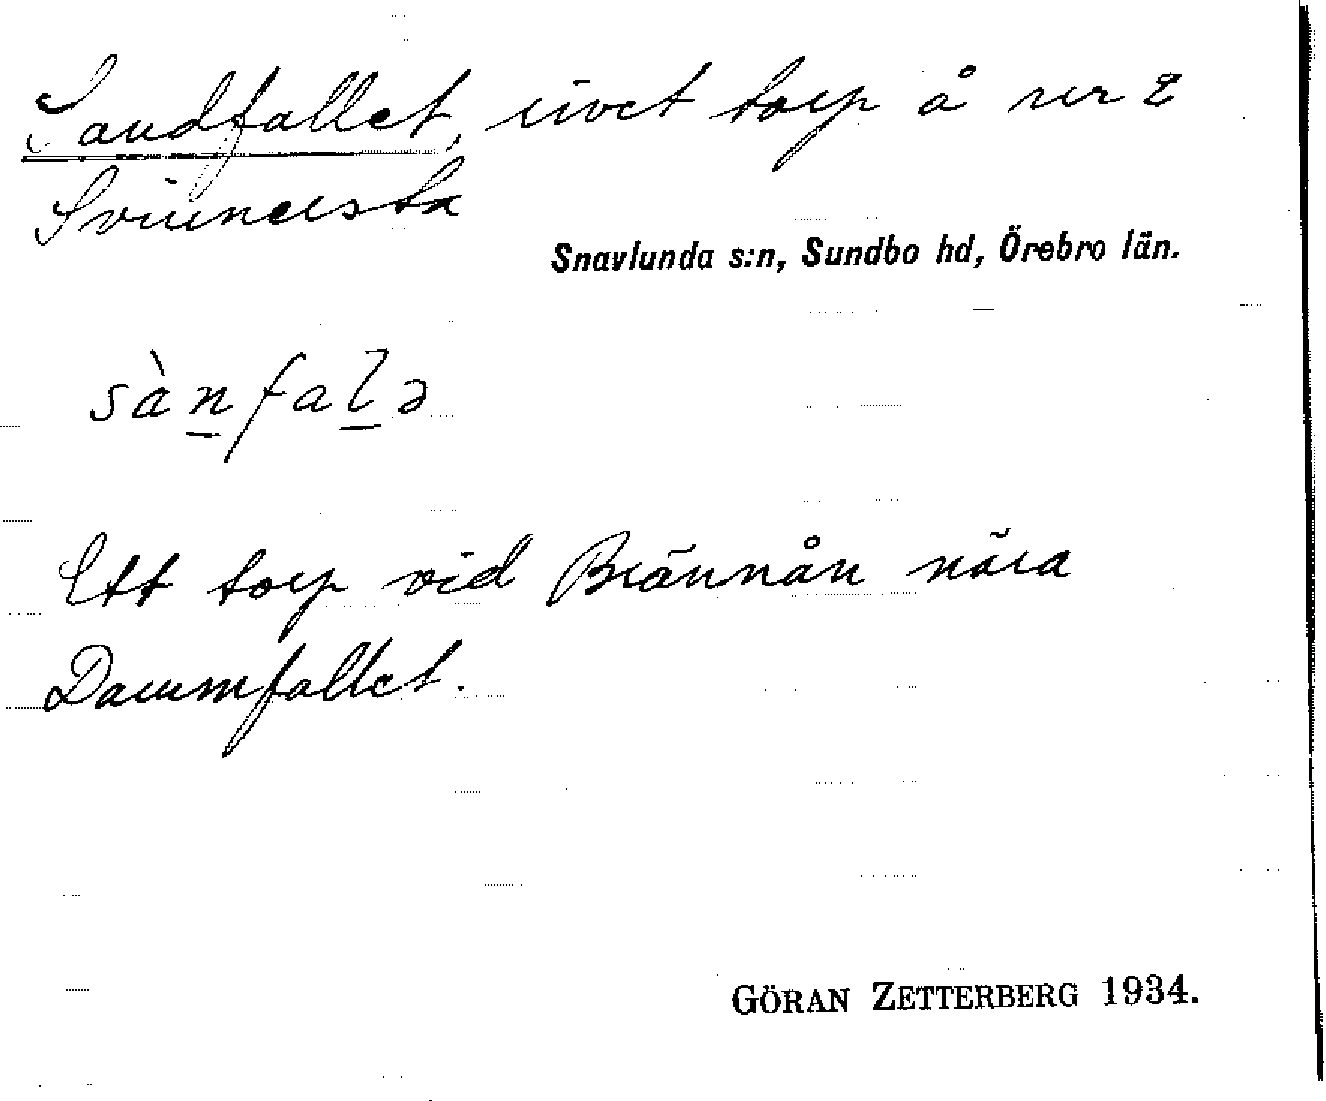 Sandfallet, rivet torp å nr 2
Svinnersta
Snavlunda s:n, Sundbo hd, Örebro län.
sàn̲fal̲ə
Ett torp vid Brännån nära
Dammfallet.
GÖRAN ZETTERBERG 1934.